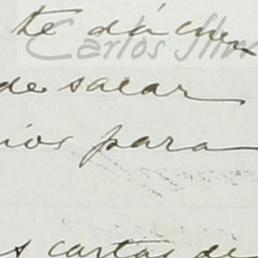 te dá cuen
de sacar
ios para
s cartas de